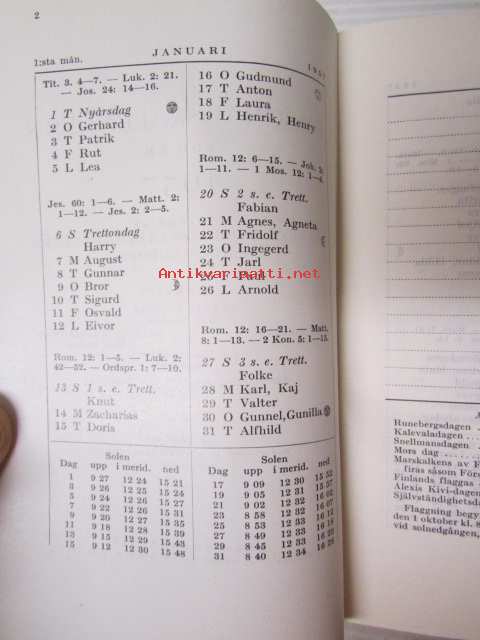 2
1:sta mån.
JANUARI
Tit. 3. 4—7. — Luk. 2: 21.
— Jos. 24: 14—16.
1 T Nyårsdag
2 O Gerhard
3 T Patrik
4 F Rut
5 L Lea
Jes. 60: 1—6. — Matt. 2:
1—12. — Jes. 2: 2—5.
6 S Trettondag
Harry
7 M August
8 T Gunnar
9 O Bror
10 T Sigurd
11 F Osvald
12 L Eivor
Rom. 12: 1—5. — Luk. 2:
42—52. — Ordspr. 1: 7—10.
13 S 1 s. e. Trett.
Knut
14 M Zacharias
15 T Doris
16 O Gudmund
17 T Anton
18 F Laura
19 L Henrik, Henry
Rom. 12: 6—15. — Joh. 2:
1—11. — 1 Mos. 12: 1—4.
20 S 2 s. e. Trett.
Fabian
21 M Agnes, Agneta
22 T Fridolf
23 O Ingegerd
24 T Jarl
25 F Paul
26 L Arnold
Rom. 12: 16—21. — Matt.
8: 1—13. — 2 Kon. 5: 1—15.
27 S 3 s. e. Trett.
Folke
28 M Karl, Kaj
29 T Valter
30 O Gunnel, Gunilla
31 T Alfhild
Solen
Dag upp i merid. ned
1 9 27 12 24 15 21
3 9 26 12 25 15 24
5 9 24 12 26 15 27
7 9 22 12 27 15 31
9 9 20 12 27 15 35
11 9 18 12 28 15 39
13 9 15 12 29 15 43
15 9 12 12 30 15 48
Solen
Dag upp i merid. ned
17 9 09 12 30 15 52
19 9 05 12 31 15 57
21 9 02 12 32 16 02
23 8 58 12 32 16 07
25 8 53 12 33 16 12
27 8 49 12 33 16 18
29 8 45 12 33
31 8 40 12 34
Antikvariaatti.net
Runebergsdagen
Kalevaladagen
Snellmansdagen
Mors dag
Marskalkens av F
firas såsom Förs
Finlands flaggas
Alexis Kivi-dagen
Självständighetsda
Flaggning begy
den 1 oktober kl. 8
vid solnedgången,